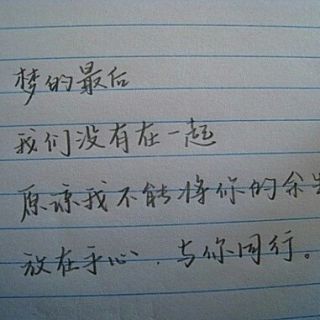 梦的最后
我们没有在一起
原谅我不能将你的余
放在手心，与你同行。